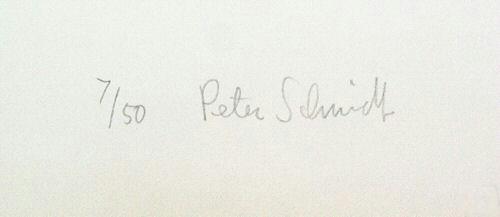 7/50 Peter Schmidt